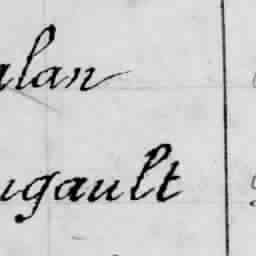 alan
ugault